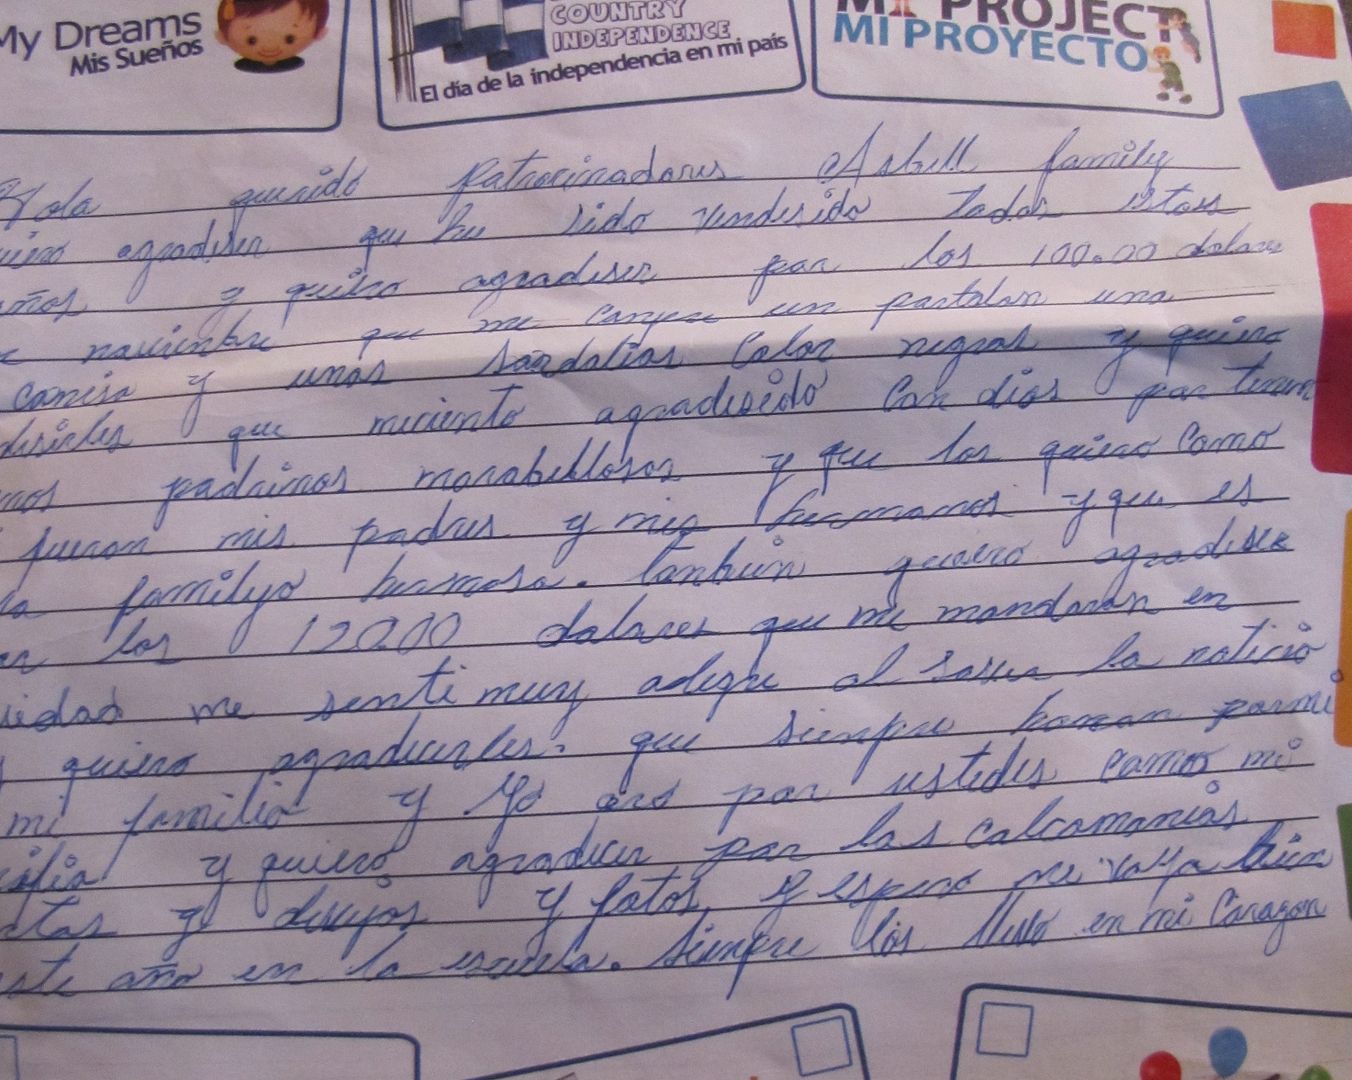 My Dreams
Mis Sueños
COUNTRY
INDEPENDENCE
El día de la independencia en mi país
MI PROJECT
MI PROYECTO
Hola querido Patrocinadores Asbill family
quiero agradiser que he sido vendesido todos estos
años y quiero agradiser por los 100.00 dolares
de noviembre que me conpre un pantalon una
camisa y unas sandalias color negras y quiero
desirles que miciento agradesido con dios por tener
unos padrinos marabellosos y que los quiero como
fueron mis padres y mis hermanos y que es
familya hermosa. tanbien quiero agradiser
por los 120.00 dolares que me mandaron en
me senti muy alegre al saver la noticia
y quiero agradecerles. que siempre horan por mi
mi familia y Yo oro por ustedes camos mi
familia y quiero agradecer por las calcomanias
y divujos y fotos y espero me vaya bien
este año en la escuela. Siempre los llevo en mi Corazon